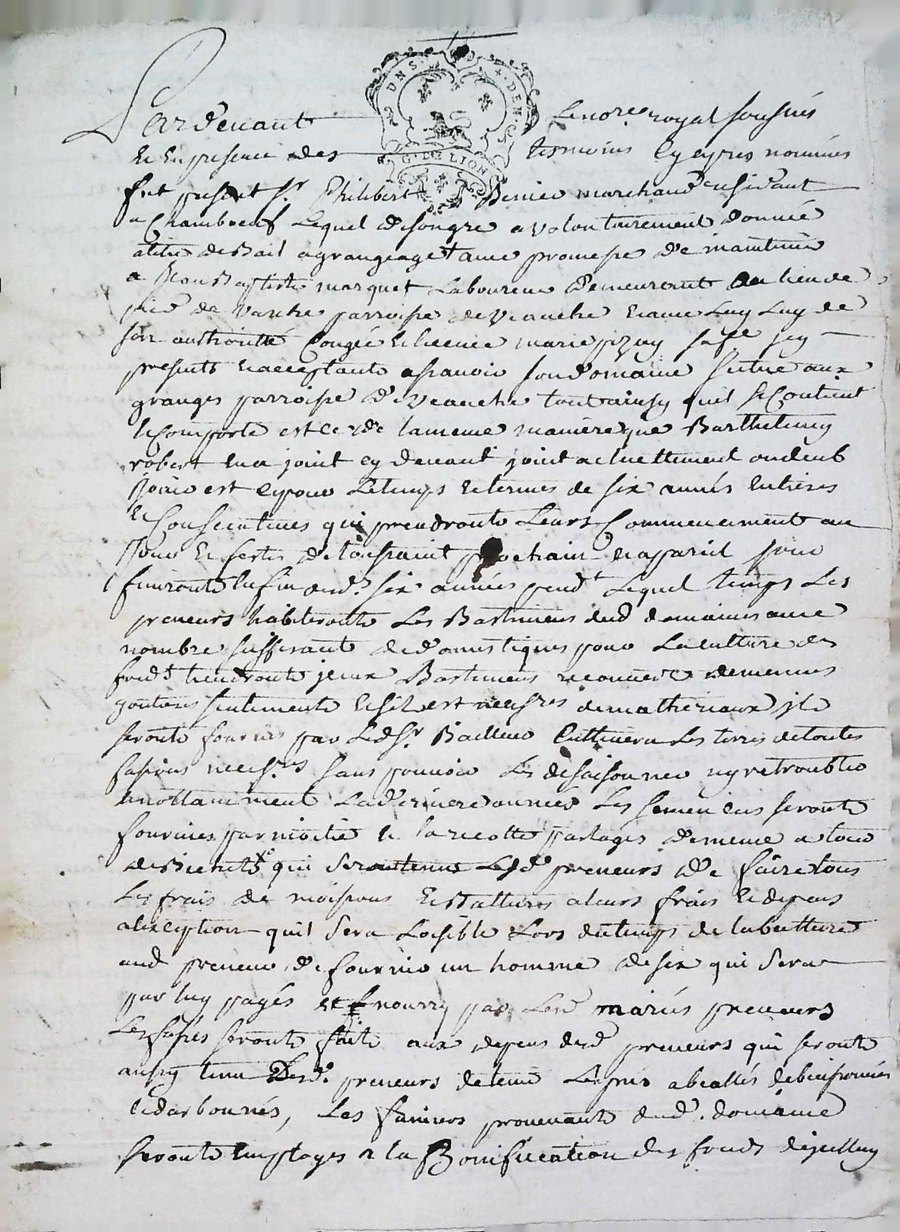 DNS DEN
G. DE LION
Pardevant Le nore royal sousnés
Et En presence des tesmoins Cy apres nommés
fut present Sr. Philibert marchand residant
a Chambœuf Lequel de son gre a volontairement donné
a titre de Bail a grangeage avec promesse de maintenir
a Jean Baptiste marquet Laboureur demeurant au lieu de
de parroisse de Veauche avec Luy de
son authorité Congée et licence marie sa fe. icy
presents et acceptants a scavoir son domaine situé aux
granges parroisse de Veauche tout ainsy quil se Contient
et Comporte est ce de la meme maniere que Barthelemy
robert en a joint cy devant joint actuellement
est ce pour Le temps et termes de six années Entieres
et Consecutives qui prendronts Leurs Commencement au
Jour et festes de toussaint prochain et a pareil jour
finironts Lesd. six années pendt. Lequel temps Les
preneurs habiteronts Les Bastimens dud. domaine avec
nombre suffisant de domestiques pour La culture des
fonds tiendronts jceux Bastimens recouvert de menues
goutieres seulements et sil est necesres. de matheriaux jls
seronts fournis par Led. Sr. Bailleur Cultivera Les terres de toutes
sasons necesres. sans pouvoir Les desaisonner ny retroubler
et nottamment La derniere années Les semences seronts
fournies par moitié et la recolte partages de meme a tour
de qui seronts tenus Lesd. preneurs de faire tous
Les frais de moissons et Battures a leurs frais et depens
a l'exception quil sera Loisible Lors du temps de la batture
aud. preneur de fournir un homme de six qui sera
par luy pagés et nourry par Lesd. mariés preneurs
Les seronts faits aux depens desd. preneurs qui seronts
aussy tenu Lesd. preneurs de tenir Les prés
et darbounés, Les fumiers provenants dud. domaine
seronts Employes a la Bonification des fonds dicelluy